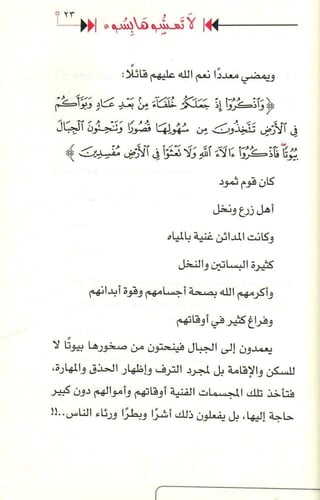 ٢٣
لا تمسّوها بسوء
ويمضي معددًا نعم الله عليهم قائلًا:
﴿وَاذْكُرُوا إِذْ جَعَلَكُمْ خُلَفَاءَ مِنْ بَعْدِ عَادٍ وَبَوَّأَكُمْ
فِي الْأَرْضِ تَتَّخِذُونَ مِنْ سُهُولِهَا قُصُورًا وَتَنْحِتُونَ الْجِبَالَ
بُيُوتًا فَاذْكُرُوا ءَالَاءَ اللَّهِ وَلَا تَعْثَوْا فِي الْأَرْضِ مُفْسِدِينَ﴾
كان قوم ثمود
أهل زرع ونخل
وكانت المدائن غنية بالمياه
كثيرة البساتين والنخل
وأكرمهم الله بصحة أجسامهم وقوة أبدانهم
وفراغ كثير في أوقاتهم
يعمدون إلى الجبال فينحتون من صخورها بيوتًا لا
للسكن والإقامة بل لمجرد الترف وإظهار الحذق والمهارة،
فتأخذ تلك المجسمات الفنية أوقاتهم وأموالهم دون كبير
حاجة إليها، بل يفعلون ذلك أشرًا وبطرًا ورئاء الناس..!!